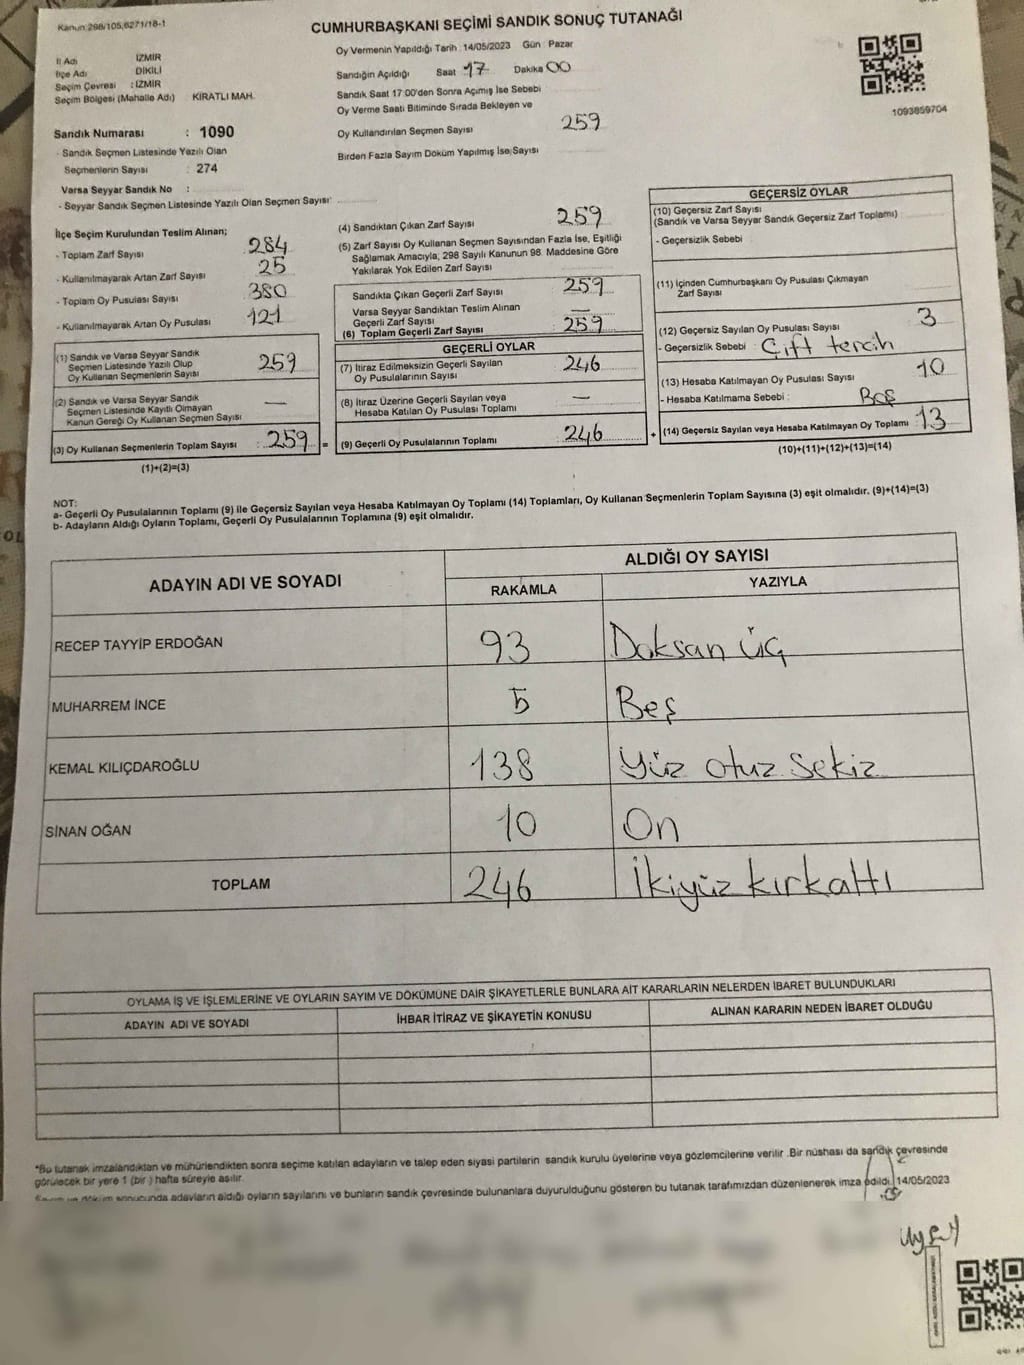 Kanun:298/105,6271/18-1
CUMHURBAŞKANI SEÇİMİ SANDIK SONUÇ TUTANAĞI
İl Adı İZMİR
İlçe Adı DİKİLİ
Seçim Çevresi : İZMİR
Seçim Bölgesi (Mahalle Adı) KİRATLI MAH.
Sandık Numarası : 1090
- Sandık Seçmen Listesinde Yazılı Olan
Seçmenlerin Sayısı : 274
Varsa Seyyar Sandık No :
- Seyyar Sandık Seçmen Listesinde Yazılı Olan Seçmen Sayısı:
Oy Vermenin Yapıldığı Tarih : 14/05/2023 Gün : Pazar
Sandığın Açıldığı Saat 17 Dakika 00
Sandık Saat 17:00'den Sonra Açımış İse Sebebi
Oy Verme Saati Bitiminde Sırada Bekleyen ve
Oy Kullandırılan Seçmen Sayısı 259
Birden Fazla Sayım Döküm Yapılmış İse;Sayısı
1093859704
İlçe Seçim Kurulundan Teslim Alınan;
- Toplam Zarf Sayısı 284
- Kullanılmayarak Artan Zarf Sayısı 25
- Toplam Oy Pusulası Sayısı 380
- Kullanılmayarak Artan Oy Pusulası 121
(1) Sandık ve Varsa Seyyar Sandık
Seçmen Listesinde Yazılı Olup
Oy Kullanan Seçmenlerin Sayısı 259
(2) Sandık ve Varsa Seyyar Sandık
Seçmen Listesinde Kayıtlı Olmayan
Kanun Gereği Oy Kullanan Seçmen Sayısı —
(3) Oy Kullanan Seçmenlerin Toplam Sayısı : 259 =
(1)+(2)=(3)
(4) Sandıktan Çıkan Zarf Sayısı 259
(5) Zarf Sayısı Oy Kullanan Seçmen Sayısından Fazla İse, Eşitliği
Sağlamak Amacıyla; 298 Sayılı Kanunun 98. Maddesine Göre
Yakılarak Yok Edilen Zarf Sayısı
Sandıkta Çıkan Geçerli Zarf Sayısı 259
Varsa Seyyar Sandıktan Teslim Alınan
Geçerli Zarf Sayısı
(6) Toplam Geçerli Zarf Sayısı : 259
GEÇERLİ OYLAR
(7) İtiraz Edilmeksizin Geçerli Sayılan
Oy Pusulalarının Sayısı 246
(8) İtiraz Üzerine Geçerli Sayılan veya
Hesaba Katılan Oy Pusulası Toplamı —
(9) Geçerli Oy Pusulalarının Toplamı : 246 +
GEÇERSİZ OYLAR
(10) Geçersiz Zarf Sayısı
(Sandık ve Varsa Seyyar Sandık Geçersiz Zarf Toplamı)
- Geçersizlik Sebebi
(11) İçinden Cumhurbaşkanı Oy Pusulası Çıkmayan
Zarf Sayısı
(12) Geçersiz Sayılan Oy Pusulası Sayısı 3
- Geçersizlik Sebebi : Çift tercih
(13) Hesaba Katılmayan Oy Pusulası Sayısı 10
- Hesaba Katılmama Sebebi : Boş
(14) Geçersiz Sayılan veya Hesaba Katılmayan Oy Toplamı : 13
(10)+(11)+(12)+(13)=(14)
NOT:
a- Geçerli Oy Pusulalarının Toplamı (9) ile Geçersiz Sayılan veya Hesaba Katılmayan Oy Toplamı (14) Toplamları, Oy Kullanan Seçmenlerin Toplam Sayısına (3) eşit olmalıdır. (9)+(14)=(3)
b- Adayların Aldığı Oyların Toplamı, Geçerli Oy Pusulalarının Toplamına (9) eşit olmalıdır.
ADAYIN ADI VE SOYADI ALDIĞI OY SAYISI
RAKAMLA YAZIYLA
RECEP TAYYİP ERDOĞAN 93 Doksan üç
MUHARREM İNCE 5 Beş
KEMAL KILIÇDAROĞLU 138 Yüz otuz sekiz
SİNAN OĞAN 10 On
TOPLAM 246 İkiyüz kırkaltı
OYLAMA İŞ VE İŞLEMLERİNE VE OYLARIN SAYIM VE DÖKÜMÜNE DAİR ŞİKAYETLERLE BUNLARA AİT KARARLARIN NELERDEN İBARET BULUNDUKLARI
ADAYIN ADI VE SOYADI İHBAR İTİRAZ VE ŞİKAYETİN KONUSU ALINAN KARARIN NEDEN İBARET OLDUĞU
*Bu tutanak imzalandıktan ve mühürlendikten sonra seçime katılan adayların ve talep eden siyasi partilerin sandık kurulu üyelerine veya gözlemcilerine verilir .Bir nüshası da sandık çevresinde
görülecek bir yere 1 (bir ) hafta süreyle asılır.
Sayım ve döküm sonucunda adayların aldığı oyların sayılarını ve bunların sandık çevresinde bulunanlara duyurulduğunu gösteren bu tutanak tarafımızdan düzenlenerek imza edildi. 14/05/2023